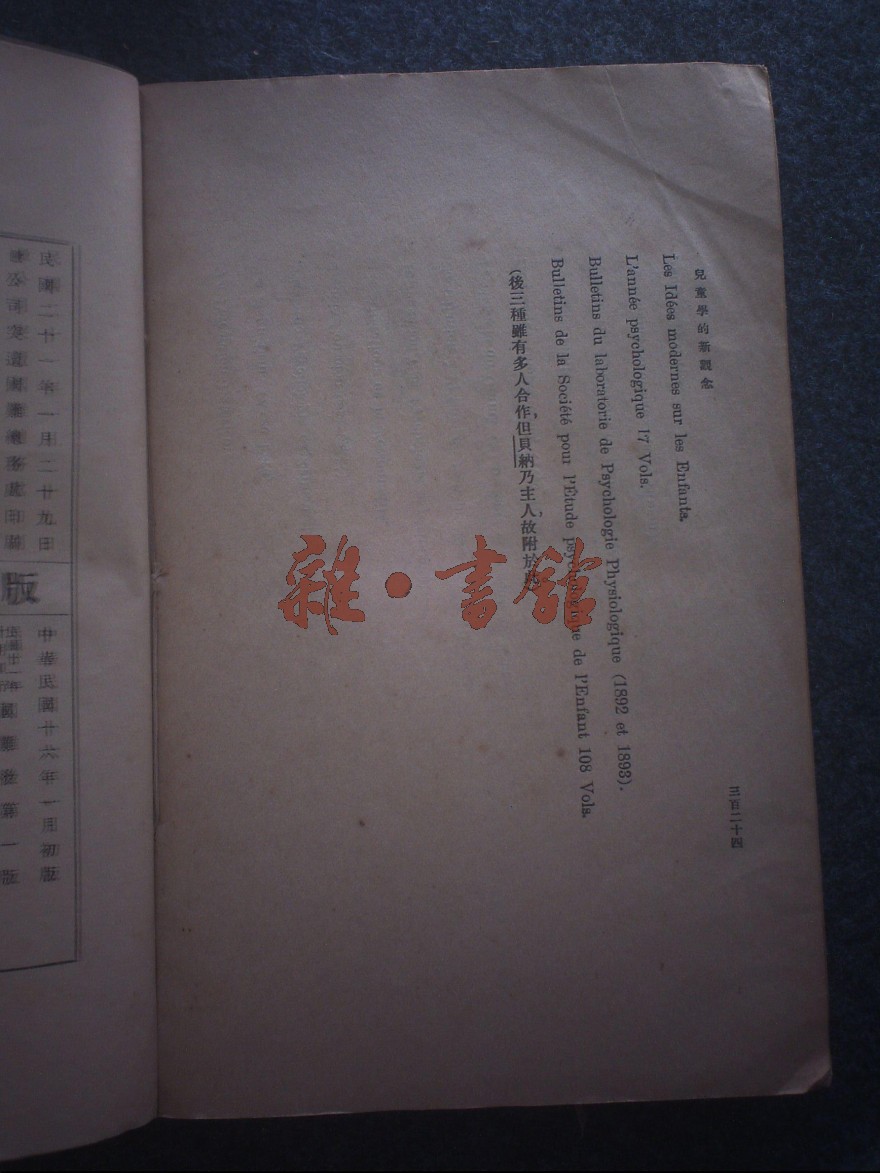 兒童學的新觀念
三百二十四
Les Idées modernes sur les Enfants.
L'année psychologique 17 Vols.
Bulletins du laboratorie de Psychologie Physiologique (1892 et 1893).
Bulletins de la Société pour l'Étude psychologique de l'Enfant 108 Vols.
(後三種雖有多人合作,但貝納乃主人,故附於此
雜·書館
民國二十一年一月二十九日
版
中華民國廿六年一月初版
國難後第一版